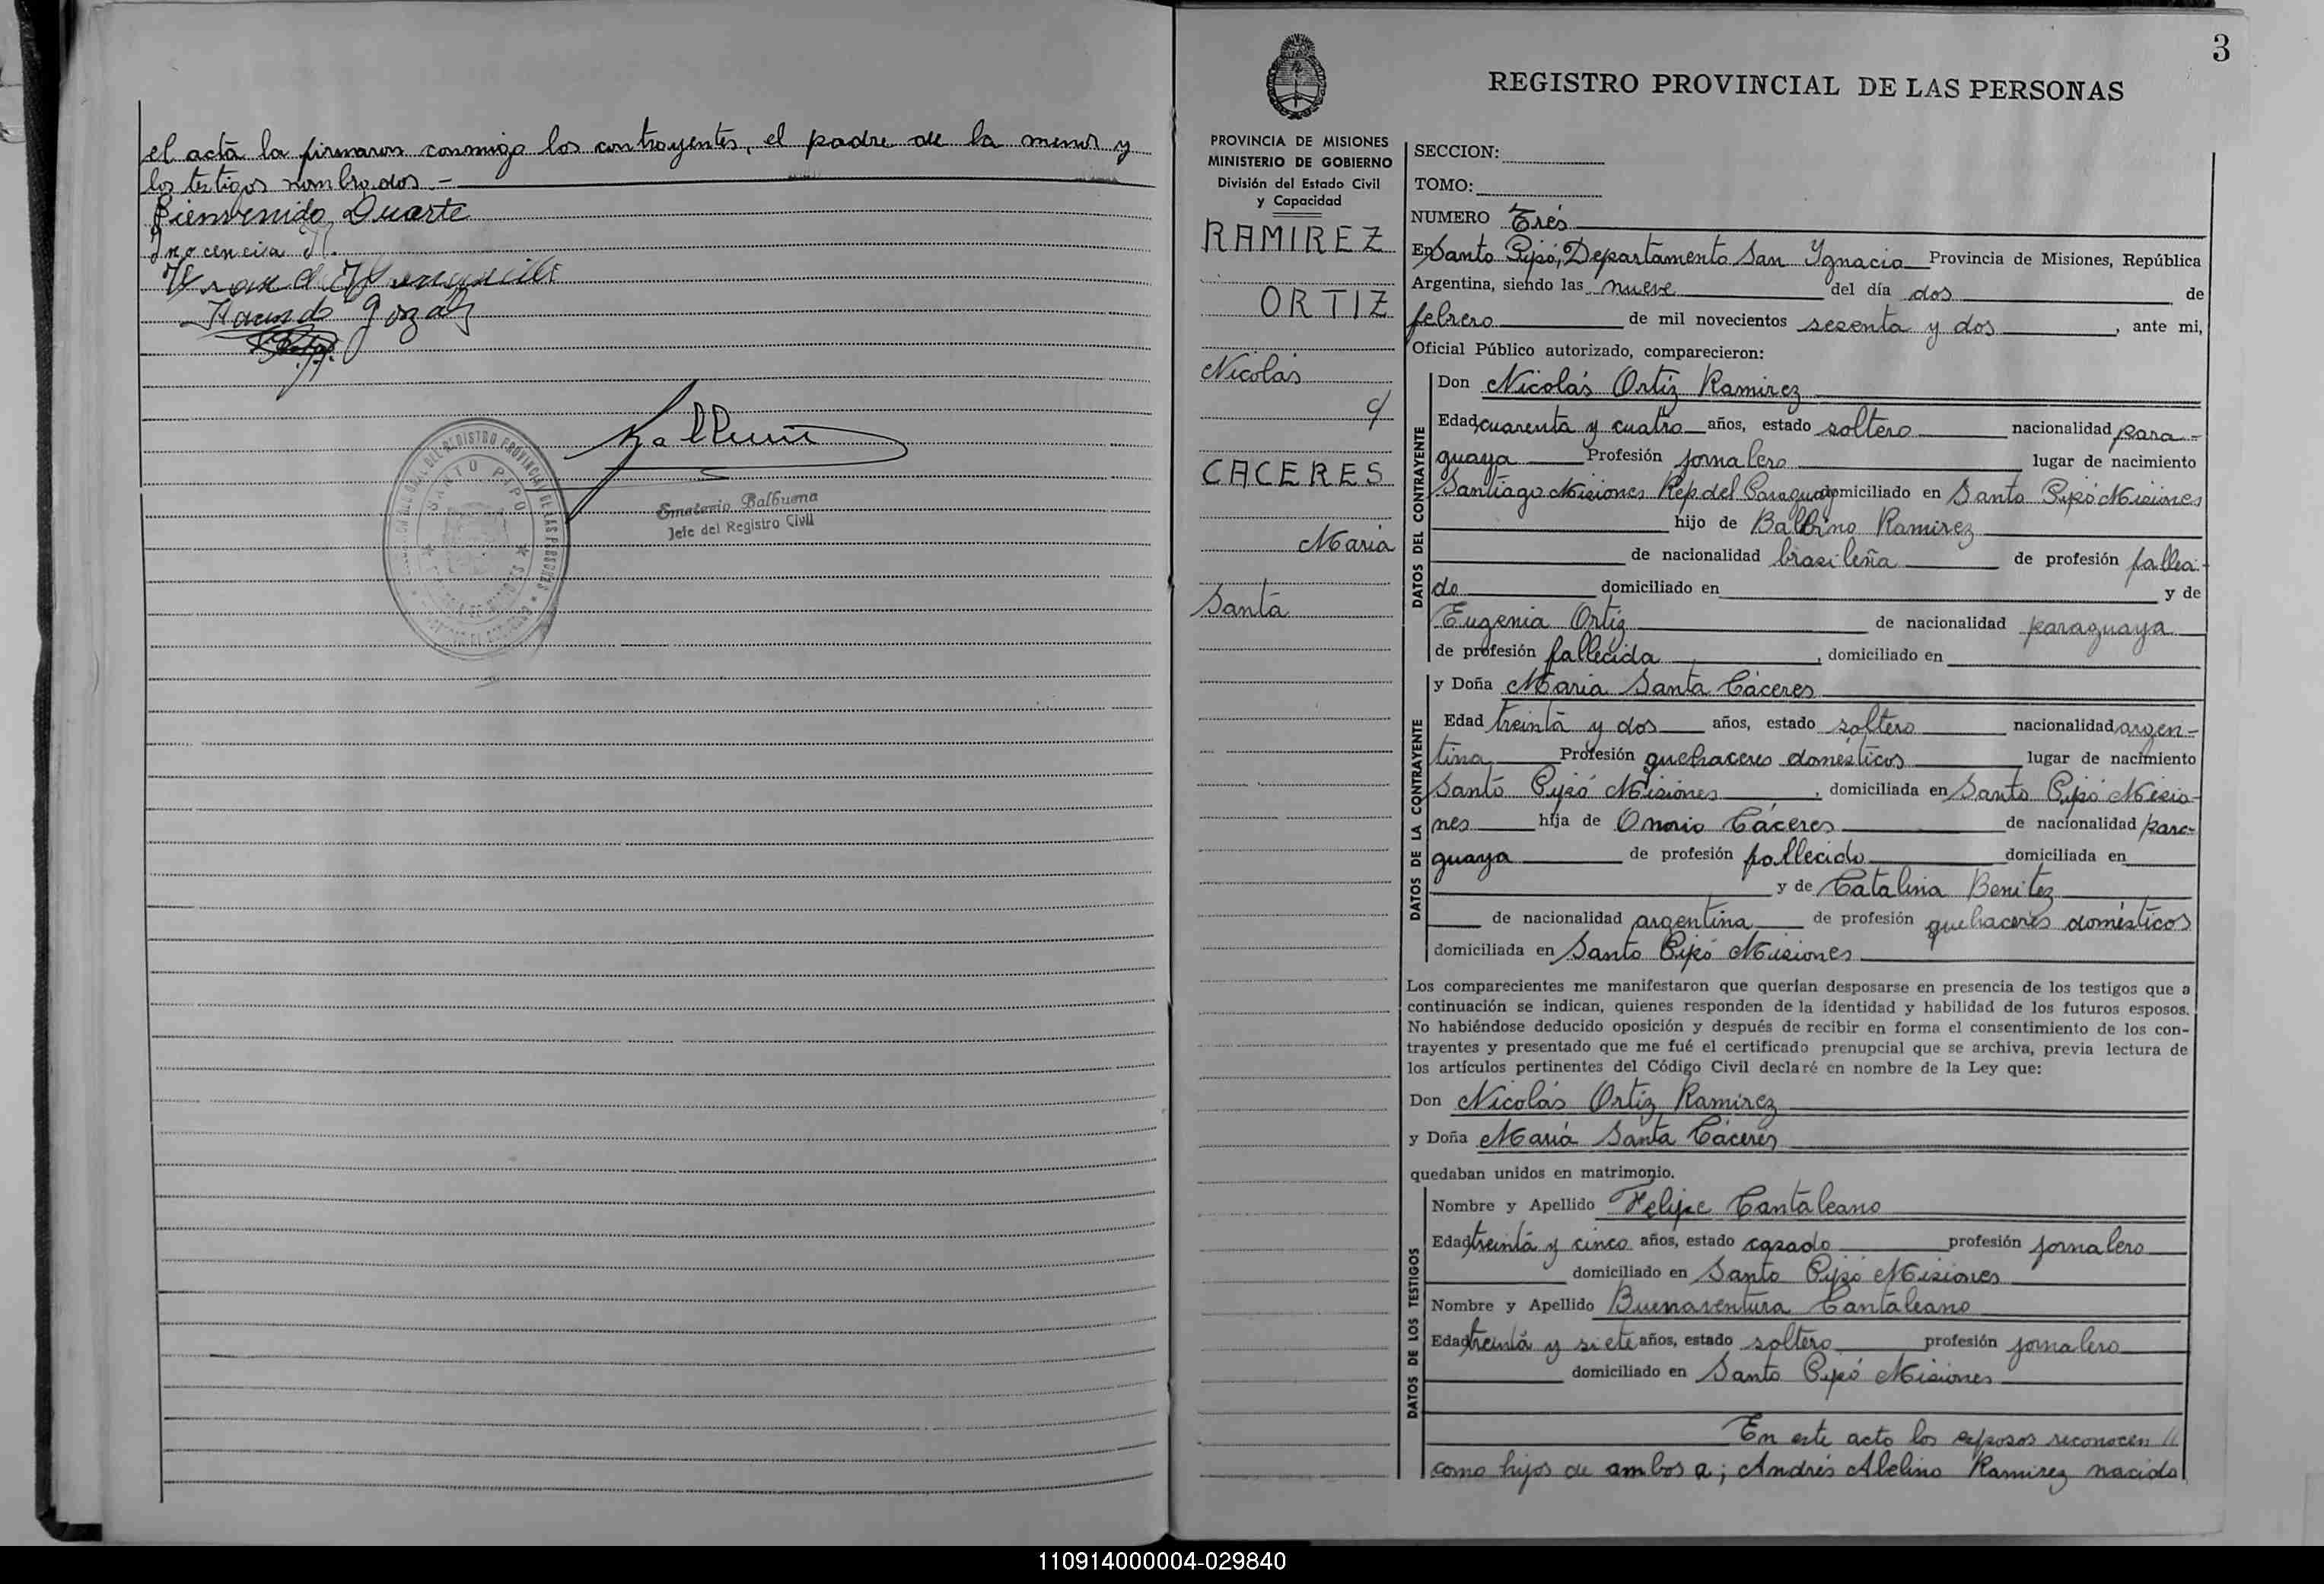 el acta la firmaron conmigo los contrayentes, el padre de la menor y
los testigos nombrados.-
Bienvenido Duarte
Inocencia
SANTO PIPO
Emeterio Balbuena
Jefe del Registro Civil
3
REGISTRO PROVINCIAL DE LAS PERSONAS
PROVINCIA DE MISIONES
MINISTERIO DE GOBIERNO
División del Estado Civil
y Capacidad
RAMIREZ
ORTIZ
Nicolás
c/
CACERES
Maria
Santa
SECCION:
TOMO:
NUMERO Trés
En Santo Pipó, Departamento San Ygnacio Provincia de Misiones, República
Argentina, siendo las nueve del día dos de
febrero de mil novecientos sesenta y dos, ante mi,
Oficial Público autorizado, comparecieron:
DATOS DEL CONTRAYENTE
Don Nicolás Ortíz Ramirez
Edad cuarenta y cuatro años, estado soltero nacionalidad para-
guaya Profesión jornalero lugar de nacimiento
Santiago Misiones Rep del Paraguay domiciliado en Santo Pipó Misiones
hijo de Balbino Ramirez
de nacionalidad brasileña de profesión falleci-
do domiciliado en y de
Eugenia Ortiz de nacionalidad paraguaya
de profesión fallecida, domiciliado en
DATOS DE LA CONTRAYENTE
y Doña Maria Santa Cáceres
Edad treinta y dos años, estado soltero nacionalidad argen-
tina Profesión quehaceres domésticos lugar de nacimiento
Santo Pipó Misiones, domiciliada en Santo Pipó Misio-
nes hija de Onorio Cáceres de nacionalidad para-
guaya de profesión fallecido domiciliada en
y de Catalina Benitez
de nacionalidad argentina de profesión quehaceres domésticos
domiciliada en Santo Pipó Misiones
Los comparecientes me manifestaron que querían desposarse en presencia de los testigos que a
continuación se indican, quienes responden de la identidad y habilidad de los futuros esposos.
No habiéndose deducido oposición y después de recibir en forma el consentimiento de los con-
trayentes y presentado que me fué el certificado prenupcial que se archiva, previa lectura de
los artículos pertinentes del Código Civil declaré en nombre de la Ley que:
Don Nicolás Ortiz Ramirez
y Doña Maria Santa Cáceres
quedaban unidos en matrimonio.
DATOS DE LOS TESTIGOS
Nombre y Apellido Felipe Cantaleano
Edad treinta y cinco años, estado casado profesión jornalero
domiciliado en Santo Pipó Misiones
Nombre y Apellido Buenaventura Cantaleano
Edad treinta y siete años, estado soltero profesión jornalero
domiciliado en Santo Pipó Misiones
En este acto los esposos reconocen
como hijos de ambos a; Andrés Abelino Ramirez nacido
110914000004-029840